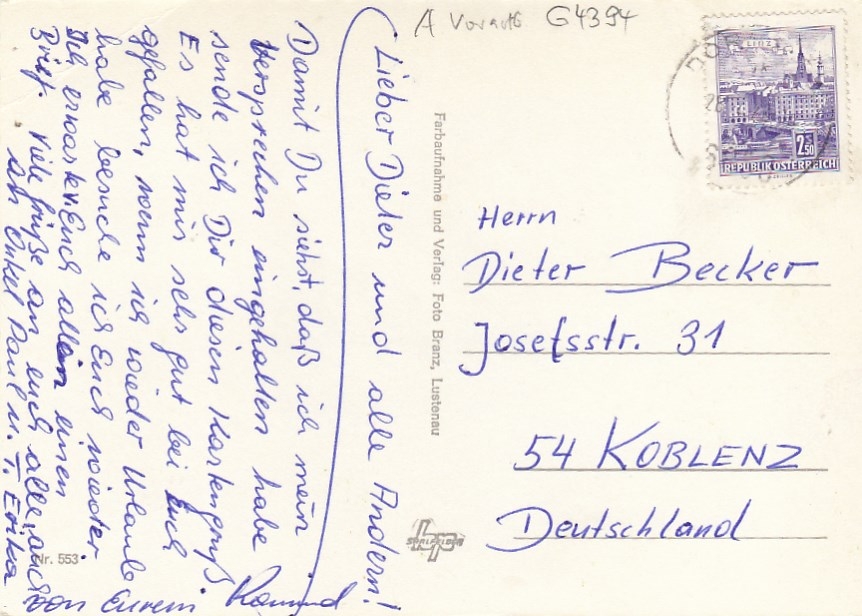 A Vorarlb G4394
LINZ
2.50
REPUBLIK ÖSTERREICH
Lieber Dieter und alle Andern!
Damit Du siehst, daß ich mein
Versprechen eingehalten habe
sende ich Dir diesen Kartengruß
Es hat mir sehr gut bei Euch
gefallen, wenn ich wieder Urlaub
habe besuche ich Euch wieder.
Ich erwarte v. Euch allen einen
Brief. Viele Grüße an euch alle, auch
an Onkel Paul u. T. Erika
von Eurem
Farbaufnahme und Verlag: Foto Branz, Lustenau
Nr. 553
Herrn
Dieter Becker
Josefsstr. 31
54 KOBLENZ
Deutschland